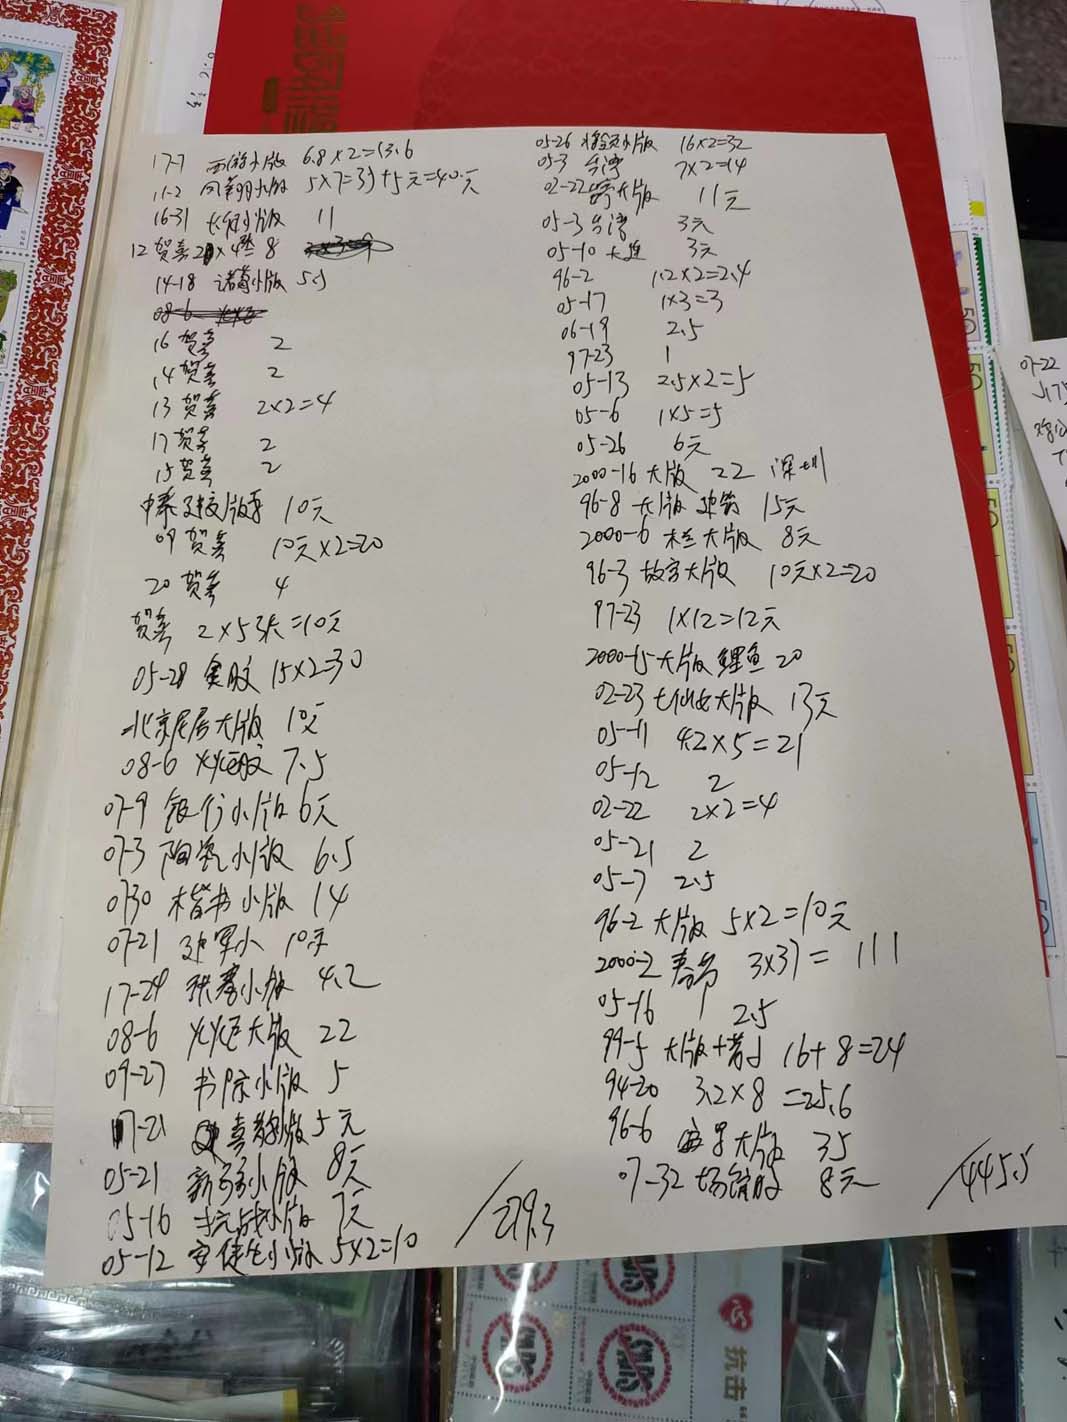 17-7 西游小版 6.8×2=13.6
11-2 凤翔小版 5×7=35+5元=40元
16-31 长征小版 11
12 贺喜 2×4 8
14-18 诸葛小版 5.5
08-6
16 贺喜 2
14 贺喜 2
13 贺喜 2×2=4
17 贺喜 2
15 贺喜 2
10元
09 贺喜 10元×2=20
20 贺喜 4
贺喜 2×5张=10元
05-28 奥胶 15×2=30
北京尼居大版 10元
08-6 火炬胶 7.5
07-9 银行小版 6元
07-3 陶瓷小版 6.5
0730 楷书小版 14
07-21 建军小 10元
17-24 张骞小版 4.2
08-6 火炬大版 22
09-27 书院小版 5
-21 喜鹊小版 5元
05-21 新疆小版 8元
05-16 抗战小版 7元
05-12 安徒生小版 5×2=10
279.3
05-26 将军小版 16×2=32
05-3 台湾 7×2=14
02-22 大版 11元
05-3 台湾 3元
05-10 大连 3元
96-2 1.2×2=2.4
05-17 1×3=3
06-19 2.5
97-23 1
05-13 2.5×2=5
05-6 1×5=5
05-26 6元
2000-16 大版 22 深圳
96-8 大版 15元
2000-6 木兰大版 8元
96-3 故宫大版 10元×2=20
97-23 1×12=12元
2000-15 大版 鲤鱼 20
02-23 七仙女大版 13元
05-11 4.2×5=21
05-12 2
02-22 2×2=4
05-21 2
05-7 2.5
96-2 大版 5×2=10元
2000-2 春节 3×37=111
05-16 1 2.5
99-5 大版+ 16+8=24
94-20 3.2×8=25.6
96-6 大版 35
07-32 场馆胶 8元
445.5
07-22
抗击